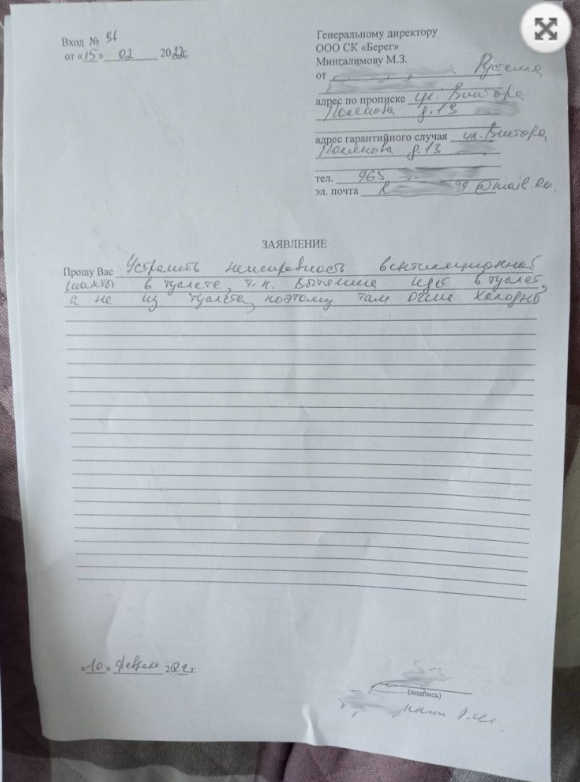 Вход № 56
от «15» 02 2022г.
Генеральному директору
ООО СК «Берег»
Мингалимову М.З.
от
адрес по прописке ул. Виктора
Полякова д. 13
адрес гарантийного случая ул. Виктора
Полякова д. 13
тел. 965
эл. почта R 99@mail.ru
ЗАЯВЛЕНИЕ
Прошу Вас Устранить неисправность вентиляционной
шахты в туалете, т.к. вытяжка идет в туалет,
а не из туалета, поэтому там очень холодно
«10» Февраля 2022г.
(подпись)